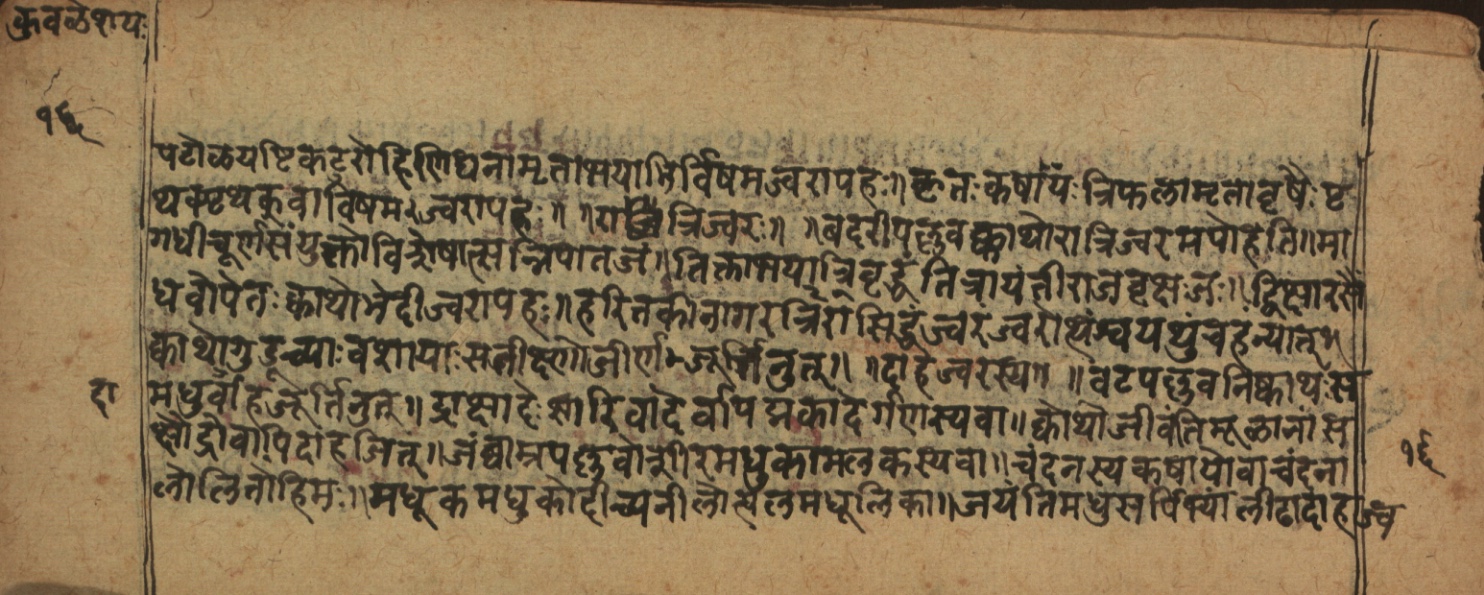 कुवळेशय
१६
पटोळयष्टिकटुरोहिणिघनामृताभयाभिर्विषमज्वरापहः॥ कृतः कषायः त्रिफलामृतावृषैः पृ
थक्पृथक्वा विषमज्वरापहः॥ ॥रात्रिज्वरः॥ ॥बदरीपल्लवक्वाथो रात्रिज्वरमपोहति॥मा
गधीचूर्णसंयुक्तो विशेषात्सन्निपातजं॥तिक्ताभयात्रिवृद्दंतित्रायंतीराजवृक्षजः॥ द्विक्षारसैं
धवोपेतः क्वाथो भेदी ज्वरापहः॥हरितकीनागर ज्वरज्वरोत्थंश्वयथुंचहन्यात्॥
क्वाथोगुडूच्याः जीर्ण जूर्तिनुत्॥ ॥दाहज्वरस्य॥ ॥वटपल्लवनिष्क्वाथः स
दा
मधुर्वाहजूर्तिनुत्॥ द्राक्षादेः सारिवादेर्वा पद्मकादेर्गणस्यवा॥क्वाथोजीवंतिमूळानां स
क्षौद्रोवापिदाहजित्॥जंब्वाम्रपल्लवोशीरमधुकामलकस्यवा॥चंदनस्यकषायोवाचंदना
१६
लोलितोहिमः॥मधूकमधुकोदीच्यनीलोत्पलमधूलिका॥जयंतिमधुसर्पिर्भ्यां लीढादाहज्व